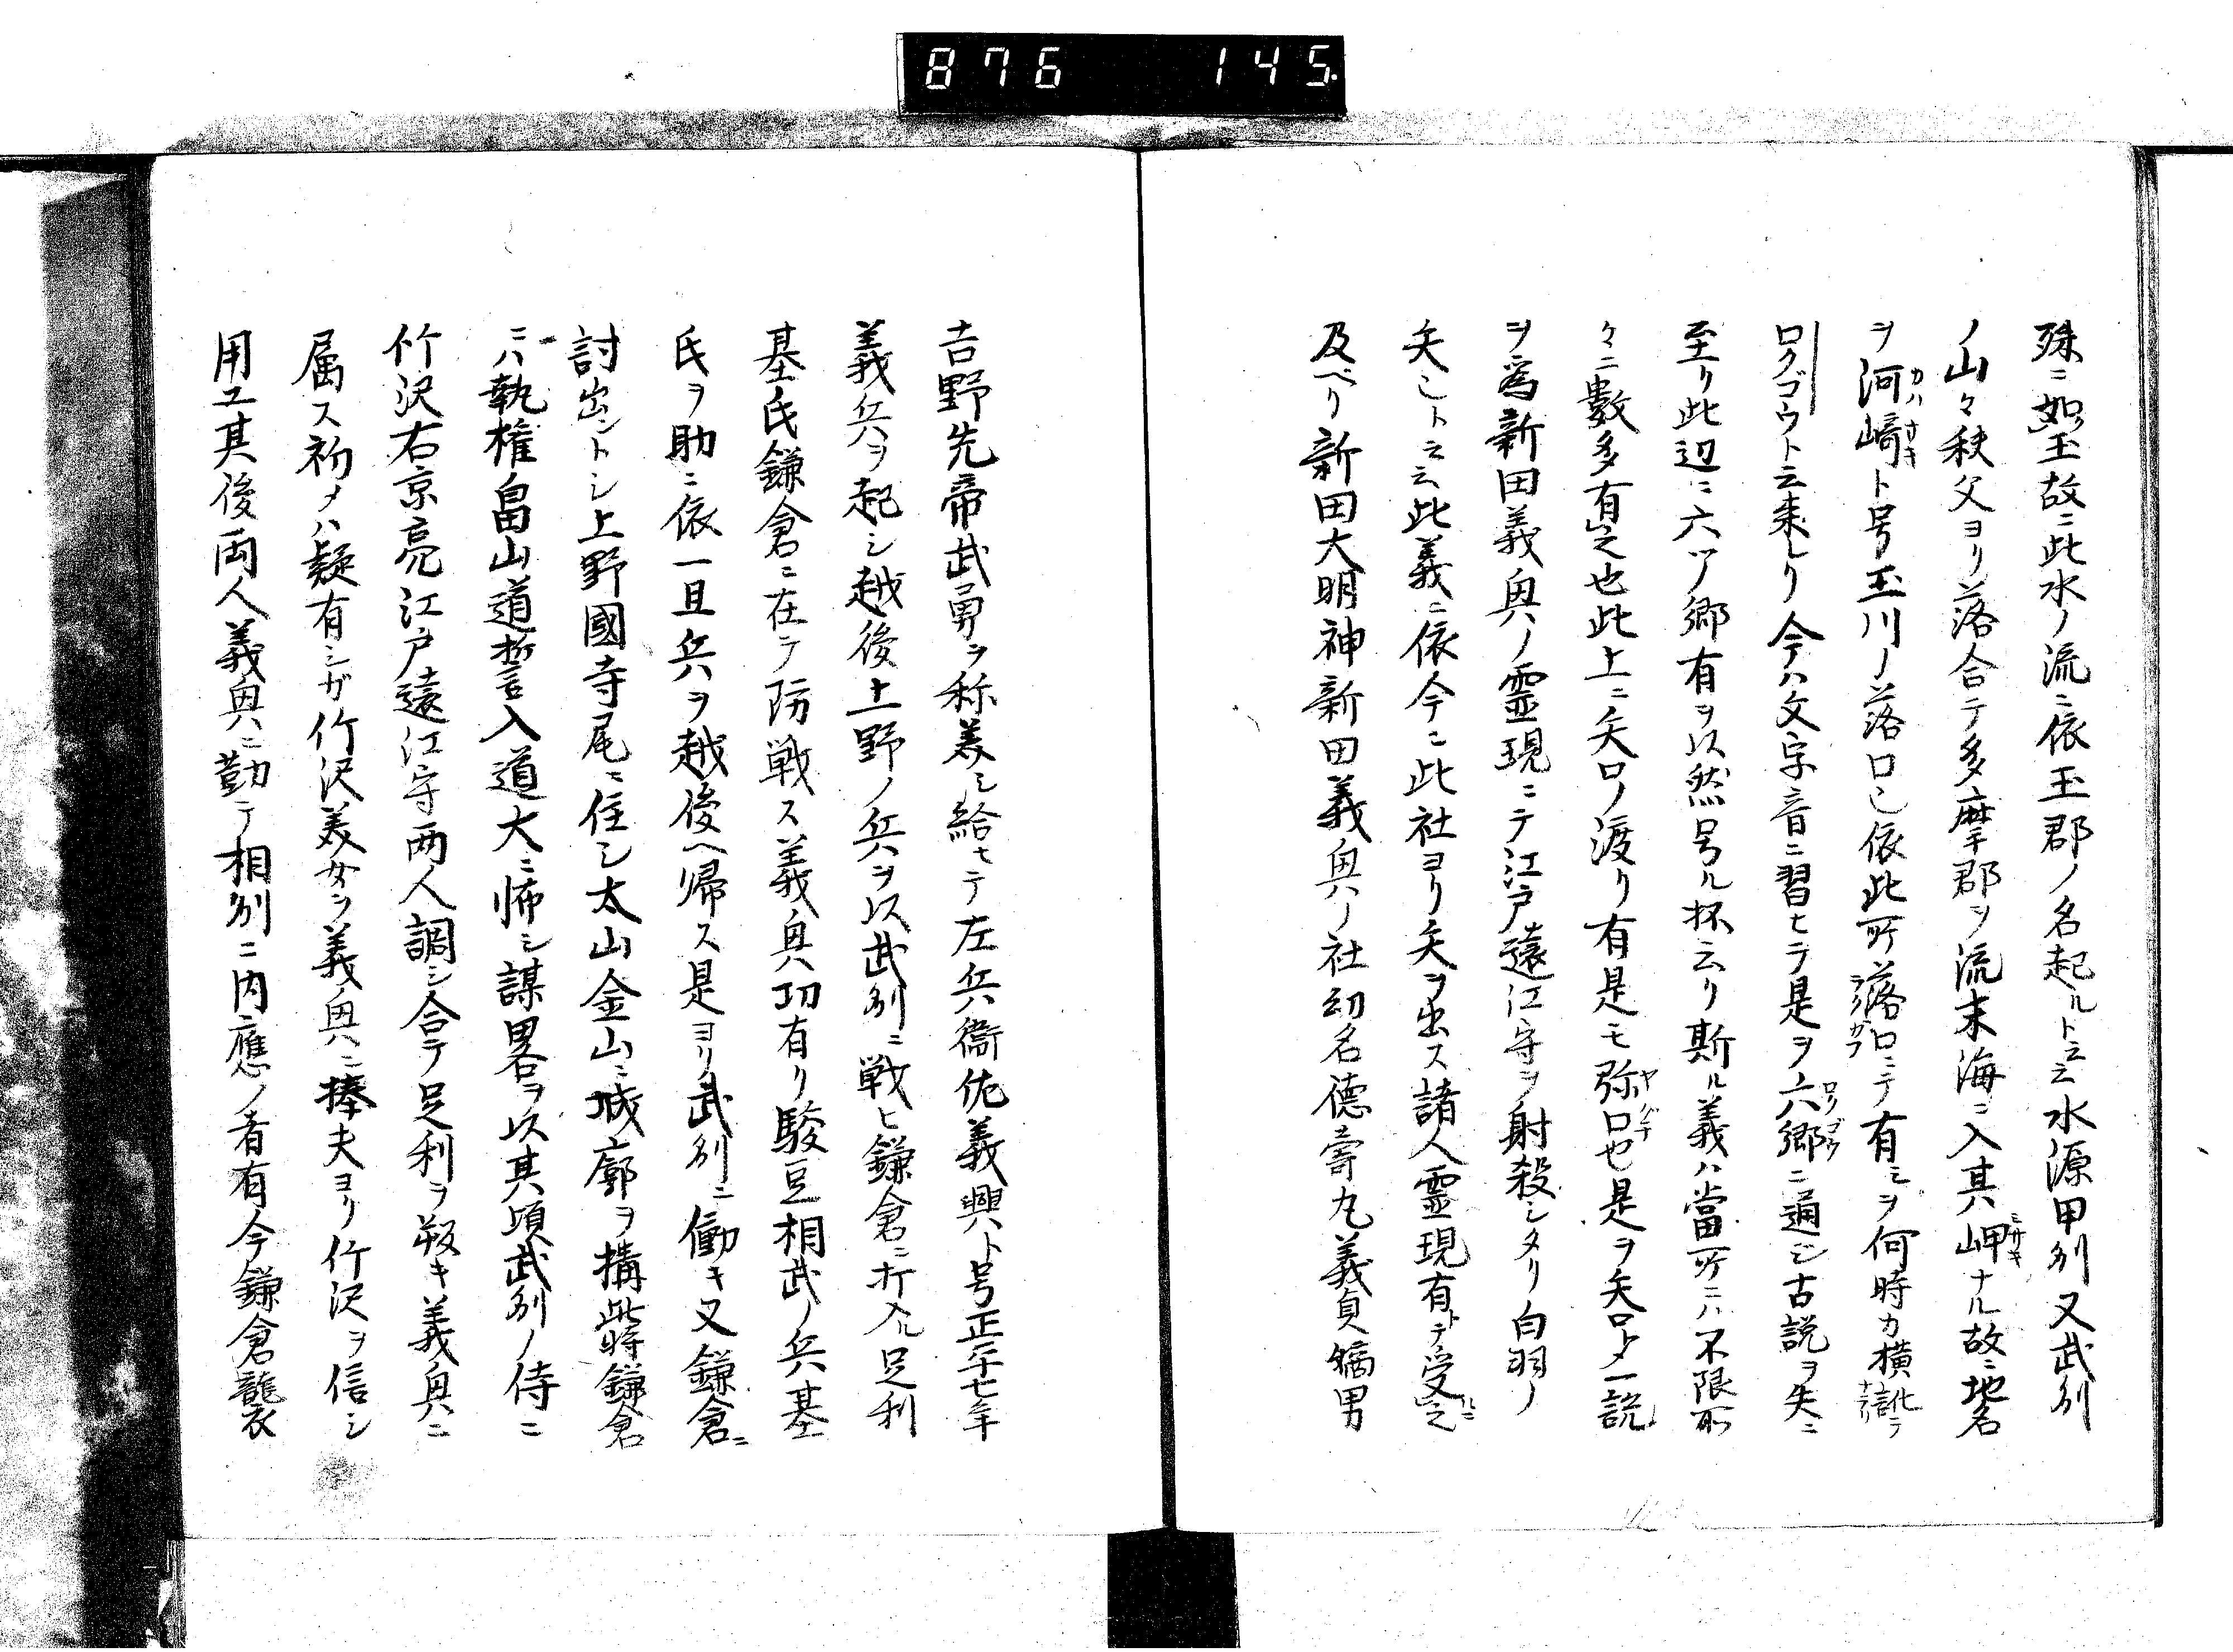 876 145.
殊ニ如玉故ニ此水ノ流ニ依玉郡ノ名起ルト云云水源甲州又武州
ノ山々秩父ヨリ落合テ多摩郡ヲ流末海ニ入其岬ミサキナル故ニ地名
ヲ河崎カハサキト号玉川ノ落口也依此所落口ニテ有シヲ何時カ横訛テ
ロクゴウト云来レリ今ハ文字音ニ習ヒテ是ヲ六郷ロクゴウニ通シ古説ヲ失ニ
至リ此辺ニ六ツノ郷有ヲ以然号ル抔云リ斯ル義ハ當所ニハ不限所
々ニ數多有之也此上ニ矢口ノ渡リ有是モ弥口也是ヲ矢口ト一説
ヲ為新田義興ノ霊現ニテ江戸遠江守ヲ射殺シタリ白羽ノ
矢也ト云云此義ニ依今ニ此社ヨリ矢ヲ出ス諸人霊現有トテ受之
及ベリ新田大明神新田義興ノ社幼名徳壽丸義貞嫡男
吉野先帝武勇ヲ称美シ給ヒテ左兵衞佐義興ト号正平七年
義兵ヲ起シ越後上野ノ兵ヲ以武州ニ戦ヒ鎌倉ニ打入ル足利
基氏鎌倉ニ在テ防戦ス義興功有リ駿豆相武ノ兵基
氏ヲ助ニ依一旦兵ヲ越後ヘ帰ス是ヨリ武州ニ働キ又鎌倉ニ
討出ントシ上野國寺尾ニ住シ太山金山ニ城廓ヲ構此時鎌倉
ニハ執権畠山道誓入道大ニ怖シ謀畧ヲ以其頃武州ノ侍ニ
竹沢右京亮江戸遠江守両人調シ合テ足利ヲ叛キ義興ニ
属ス初メハ疑有シガ竹沢美女ヲ義興ニ捧夫ヨリ竹沢ヲ信シ
用ユ其後両人義興ニ勸テ相州ニ内應ノ者有今鎌倉襲